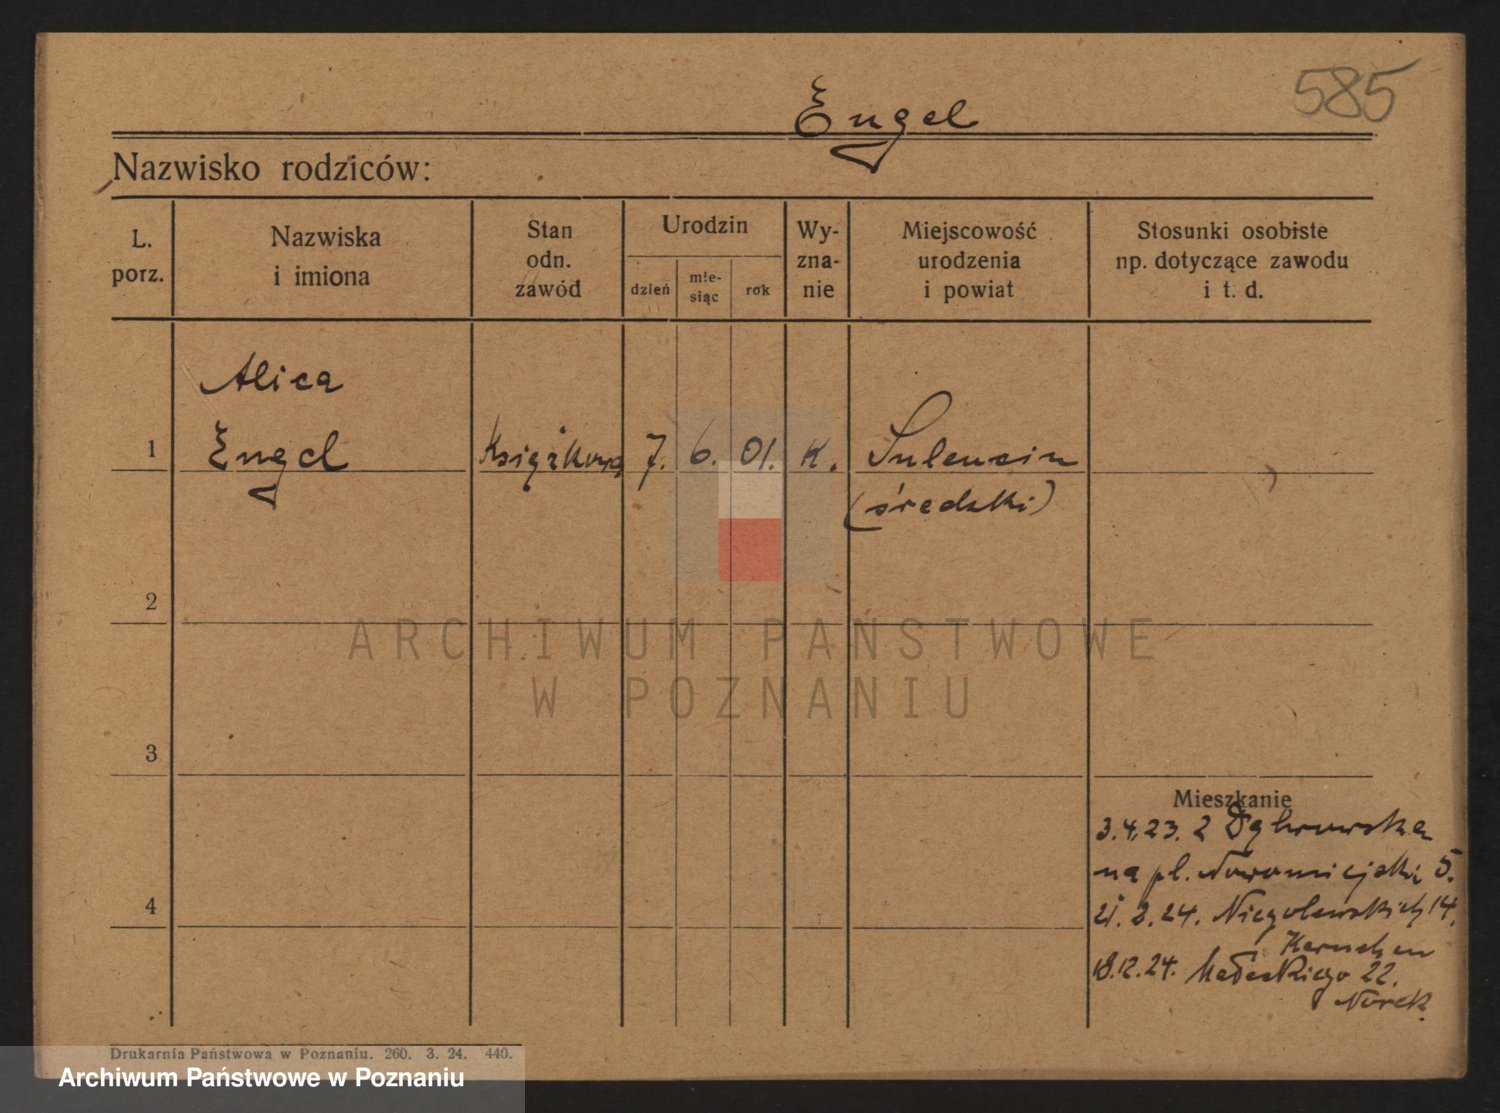 585
Engel
Nazwisko rodziców:
L. porz.
Nazwiska i imiona
Stan odn. zawód
Urodzin
dzień
mie-
siąc
rok
Wy-
zna-
nie
Miejscowość urodzenia i powiat
Stosunki osobiste np. dotyczące zawodu i t. d.
Alica
1 Engel Książkowa 7. 6. 01. K. Sulencin
(średzki)
2
ARCHIWUM PAŃSTWOWE
W POZNANIU
3
Mieszkanie
3.4.23. z Dąbrowska
na pl. Nowomiejski 5.
4
21.2.24. Niegolewskich 14.
18.12.24. Małeckiego 22.
Norek
Drukarnia Państwowa w Poznaniu. 260. 3. 24. 440.
Archiwum Państwowe w Poznaniu